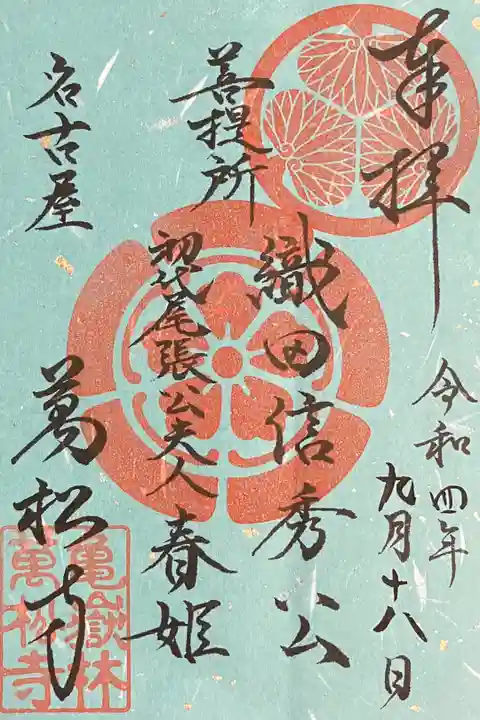 奉拝
令和四年
九月十八日
織田信秀公
菩提所
初代尾張公夫人春姫
名古屋
萬松寺
亀嶽林
萬松寺